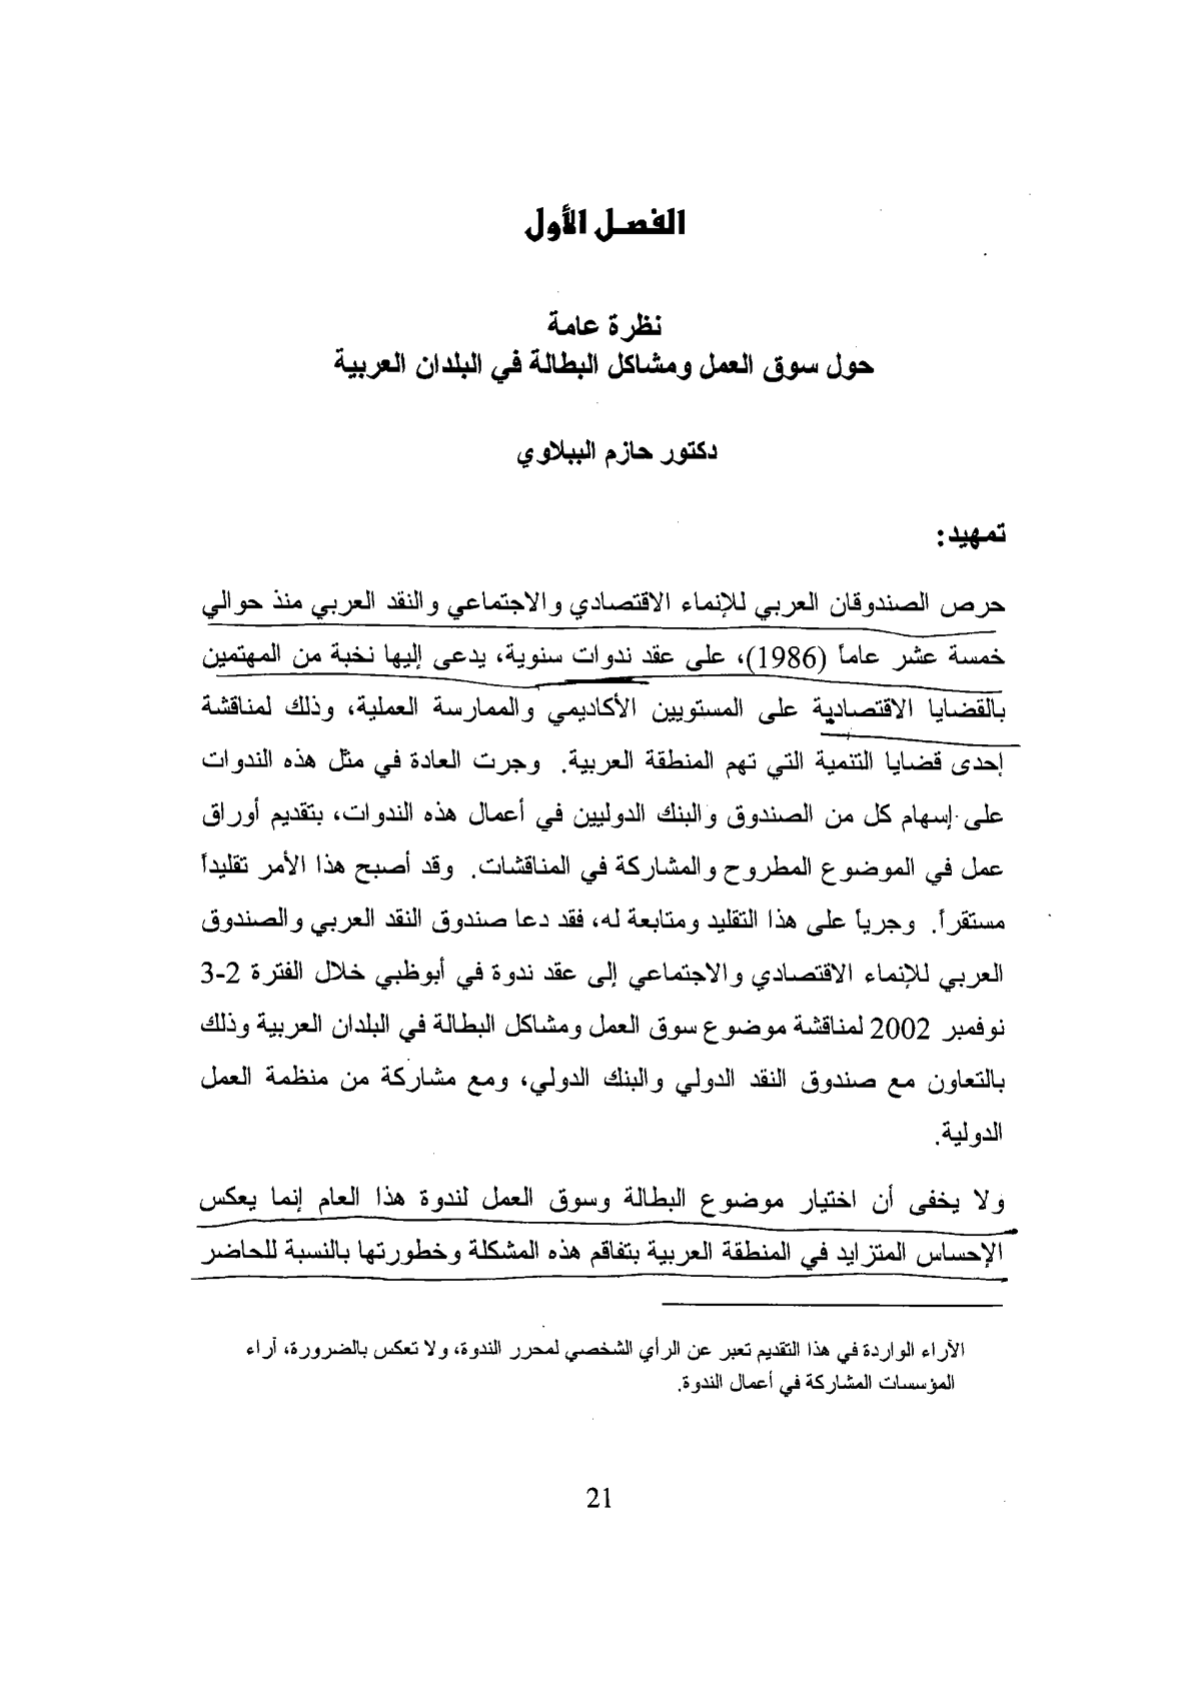 الفصل الأول
نظرة عامة
حول سوق العمل ومشاكل البطالة في البلدان العربية
دكتور حازم الببلاوي
تمهيد:
حرص الصندوقان العربي للإنماء الاقتصادي والاجتماعي والنقد العربي منذ حوالي
خمسة عشر عاماً (1986)، على عقد ندوات سنوية، يدعى إليها نخبة من المهتمين
بالقضايا الاقتصادية على المستويين الأكاديمي والممارسة العملية، وذلك لمناقشة
إحدى قضايا التنمية التي تهم المنطقة العربية. وجرت العادة في مثل هذه الندوات
على إسهام كل من الصندوق والبنك الدوليين في أعمال هذه الندوات، بتقديم أوراق
عمل في الموضوع المطروح والمشاركة في المناقشات. وقد أصبح هذا الأمر تقليداً
مستقراً. وجرياً على هذا التقليد ومتابعة له، فقد دعا صندوق النقد العربي والصندوق
العربي للإنماء الاقتصادي والاجتماعي إلى عقد ندوة في أبوظبي خلال الفترة 2-3
نوفمبر 2002 لمناقشة موضوع سوق العمل ومشاكل البطالة في البلدان العربية وذلك
بالتعاون مع صندوق النقد الدولي والبنك الدولي، ومع مشاركة من منظمة العمل
الدولية.
ولا يخفى أن اختيار موضوع البطالة وسوق العمل لندوة هذا العام إنما يعكس
الإحساس المتزايد في المنطقة العربية بتفاقم هذه المشكلة وخطورتها بالنسبة للحاضر
الآراء الواردة في هذا التقديم تعبر عن الرأي الشخصي لمحرر الندوة، ولا تعكس بالضرورة، آراء
المؤسسات المشاركة في أعمال الندوة.
21